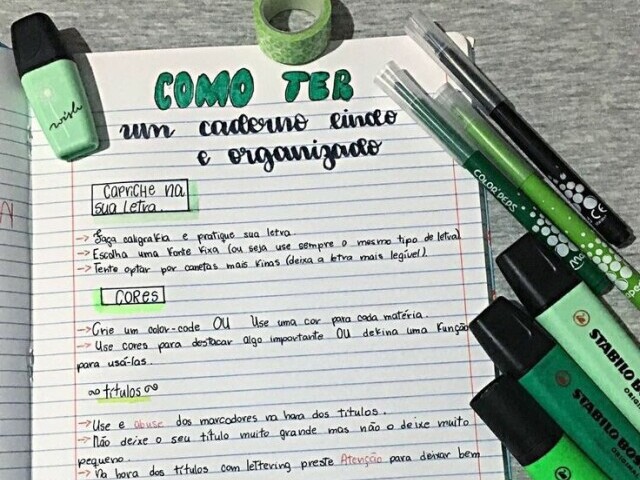 COMO TER
um caderno lindo
e organizado
CAPRICHE na
sua letra
→ Faça caligrafia e pratique sua letra.
→ Escolha uma fonte fixa (ou seja use sempre o mesmo tipo de letra)
→ Tente optar por canetas mais finas (deixa a letra mais legível).
CORES
→ Crie um color-code OU Use uma cor para cada matéria.
→ Use cores para destacar algo importante OU defina uma função
para usá-las.
títulos
→ Use e abuse dos marcadores na hora dos títulos.
→ Não deixe o seu título muito grande mas não o deixe muito
pequeno.
→ Na hora dos títulos com lettering preste Atenção para deixar bem
wish
COLOR'PEPS
STABILO BOSS
STABILO BOSS
STABILO BO